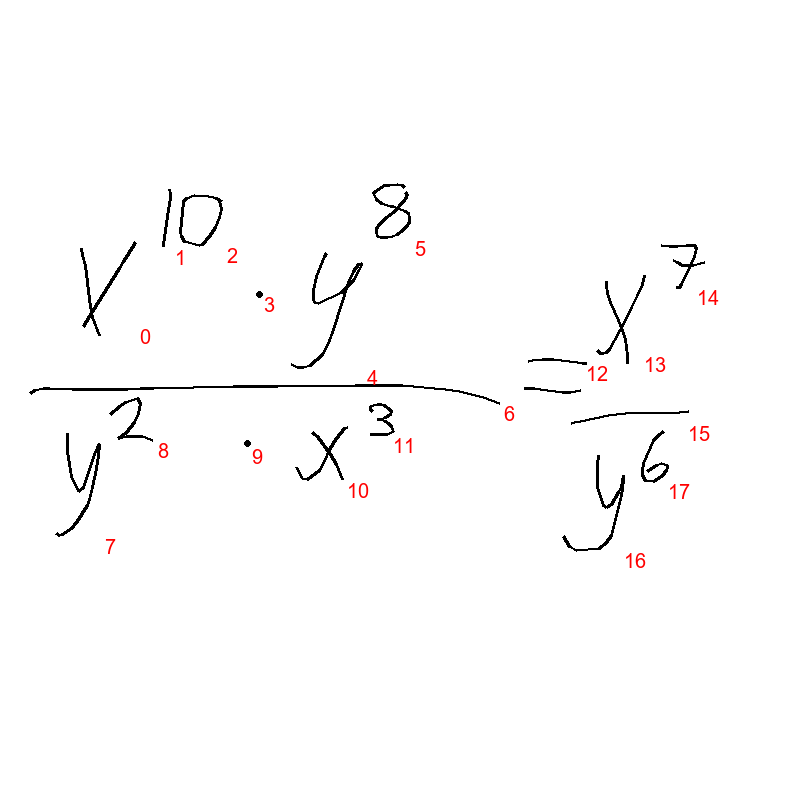 \frac{x^{10} \cdot y^{8}}{y^{2} \cdot x^{3}} = \frac{x^{7}}{y^{6}}
0 1 2 3 4 5 6 7 8 9 10 11 12 13 14 15 16 17